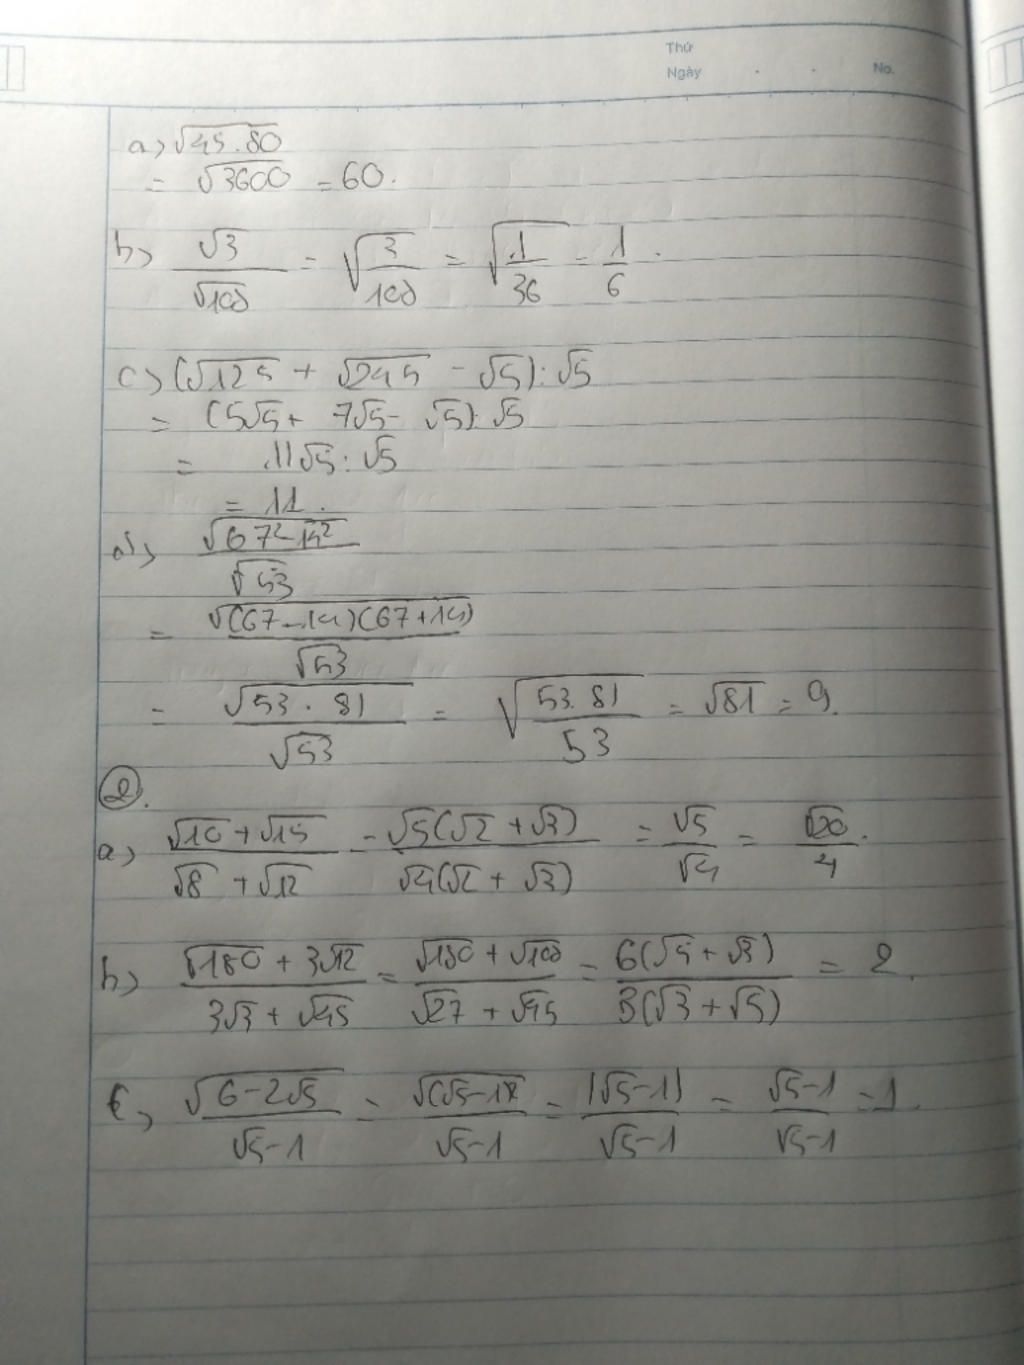 Thứ
Ngày . . No.
a) √45.80
= √3600 = 60.
b) √3/√108 = √(3/108) = √(1/36) = 1/6.
c) (√125 + √245 - √5) : √5
= (5√5 + 7√5 - √5) : √5
= 11√5 : √5
= 11.
d) √(67² - 14²)/√53
= √((67 - 14)(67 + 14))/√53
= √(53 . 81)/√53 = √(53.81/53) = √81 = 9.
②.
a) (√10 + √15)/(√8 + √12) = √5(√2 + √3)/√4(√2 + √3) = √5/√4 = √20/4.
b) (√180 + 3√12)/(3√3 + √45) = (√180 + √108)/(√27 + √45) = 6(√5 + √3)/3(√3 + √5) = 2.
c) √(6 - 2√5)/(√5 - 1) = √(√5 - 1)²/(√5 - 1) = |√5 - 1|/(√5 - 1) = (√5 - 1)/(√5 - 1) = 1.